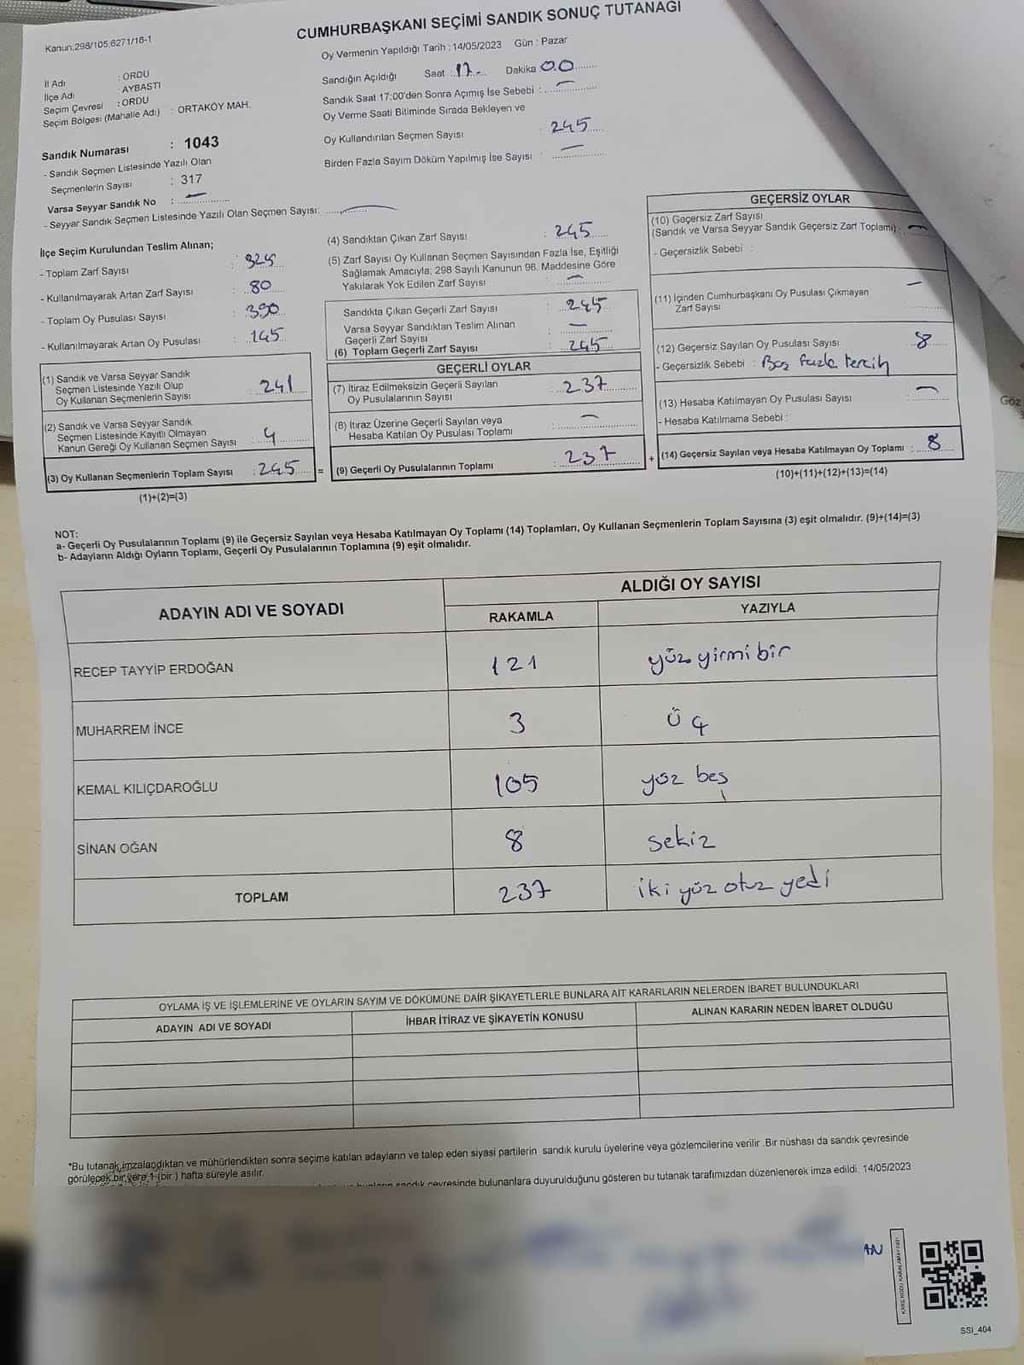 CUMHURBAŞKANI SEÇİMİ SANDIK SONUÇ TUTANAĞI
Kanun:298/105,6271/16-1
İl Adı : ORDU
İlçe Adı : AYBASTI
Seçim Çevresi : ORDU
Seçim Bölgesi (Mahalle Adı) : ORTAKÖY MAH.
Sandık Numarası : 1043
- Sandık Seçmen Listesinde Yazılı Olan
Seçmenlerin Sayısı : 317
Varsa Seyyar Sandık No : —
- Seyyar Sandık Seçmen Listesinde Yazılı Olan Seçmen Sayısı: —
Oy Vermenin Yapıldığı Tarih : 14/05/2023 Gün : Pazar
Sandığın Açıldığı Saat 17 Dakika 00
Sandık Saat 17:00'den Sonra Açımış İse Sebebi : —
Oy Verme Saati Bitiminde Sırada Bekleyen ve
Oy Kullandırılan Seçmen Sayısı : 245
Birden Fazla Sayım Döküm Yapılmış İse Sayısı : —
İlçe Seçim Kurulundan Teslim Alınan;
- Toplam Zarf Sayısı : 325
- Kullanılmayarak Artan Zarf Sayısı : 80
- Toplam Oy Pusulası Sayısı : 390
- Kullanılmayarak Artan Oy Pusulası : 145
(1) Sandık ve Varsa Seyyar Sandık
Seçmen Listesinde Yazılı Olup
Oy Kullanan Seçmenlerin Sayısı : 241
(2) Sandık ve Varsa Seyyar Sandık
Seçmen Listesinde Kayıtlı Olmayan
Kanun Gereği Oy Kullanan Seçmen Sayısı : 4
(3) Oy Kullanan Seçmenlerin Toplam Sayısı : 245 =
(1)+(2)=(3)
(4) Sandıktan Çıkan Zarf Sayısı : 245
(5) Zarf Sayısı Oy Kullanan Seçmen Sayısından Fazla İse, Eşitliği
Sağlamak Amacıyla; 298 Sayılı Kanunun 98. Maddesine Göre
Yakılarak Yok Edilen Zarf Sayısı : —
Sandıkta Çıkan Geçerli Zarf Sayısı : 245
Varsa Seyyar Sandıktan Teslim Alınan
Geçerli Zarf Sayısı : —
(6) Toplam Geçerli Zarf Sayısı : 245
GEÇERLİ OYLAR
(7) İtiraz Edilmeksizin Geçerli Sayılan
Oy Pusulalarının Sayısı : 237
(8) İtiraz Üzerine Geçerli Sayılan veya
Hesaba Katılan Oy Pusulası Toplamı : —
(9) Geçerli Oy Pusulalarının Toplamı : 237 +
GEÇERSİZ OYLAR
(10) Geçersiz Zarf Sayısı
(Sandık ve Varsa Seyyar Sandık Geçersiz Zarf Toplamı) : —
- Geçersizlik Sebebi :
(11) İçinden Cumhurbaşkanı Oy Pusulası Çıkmayan —
Zarf Sayısı
(12) Geçersiz Sayılan Oy Pusulası Sayısı : 8
- Geçersizlik Sebebi : Boş fazla tercih
(13) Hesaba Katılmayan Oy Pusulası Sayısı : —
- Hesaba Katılmama Sebebi :
(14) Geçersiz Sayılan veya Hesaba Katılmayan Oy Toplamı : 8
(10)+(11)+(12)+(13)=(14)
Göz
NOT:
a- Geçerli Oy Pusulalarının Toplamı (9) ile Geçersiz Sayılan veya Hesaba Katılmayan Oy Toplamı (14) Toplamları, Oy Kullanan Seçmenlerin Toplam Sayısına (3) eşit olmalıdır. (9)+(14)=(3)
b- Adayların Aldığı Oyların Toplamı, Geçerli Oy Pusulalarının Toplamına (9) eşit olmalıdır.
ADAYIN ADI VE SOYADI ALDIĞI OY SAYISI
RAKAMLA YAZIYLA
RECEP TAYYİP ERDOĞAN 121 yüz yirmi bir
MUHARREM İNCE 3 Üç
KEMAL KILIÇDAROĞLU 105 yüz beş
SİNAN OĞAN 8 sekiz
TOPLAM 237 iki yüz otuz yedi
OYLAMA İŞ VE İŞLEMLERİNE VE OYLARIN SAYIM VE DÖKÜMÜNE DAİR ŞİKAYETLERLE BUNLARA AİT KARARLARIN NELERDEN İBARET BULUNDUKLARI
ADAYIN ADI VE SOYADI İHBAR İTİRAZ VE ŞİKAYETİN KONUSU ALINAN KARARIN NEDEN İBARET OLDUĞU
*Bu tutanak imzalandıktan ve mühürlendikten sonra seçime katılan adayların ve talep eden siyasi partilerin sandık kurulu üyelerine veya gözlemcilerine verilir .Bir nüshası da sandık çevresinde
görülecek bir yere 1 (bir ) hafta süreyle asılır.
sandık çevresinde bulunanlara duyurulduğunu gösteren bu tutanak tarafımızdan düzenlenerek imza edildi. 14/05/2023
AN
SSI_404